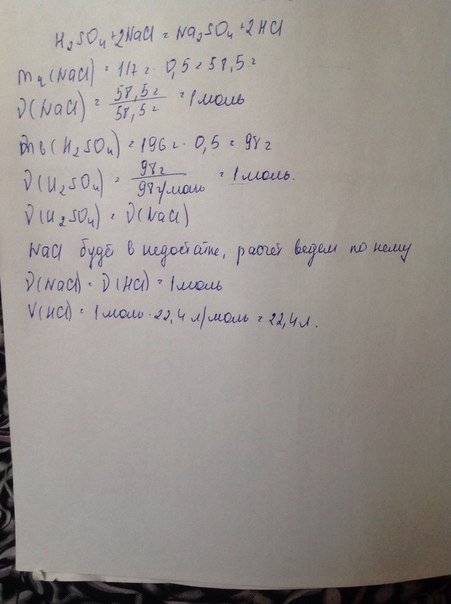 H₂SO₄+2NaCl = Na₂SO₄+2HCl
m ч (NaCl) = 117г · 0,5 = 58,5г
ν(NaCl) = 58,5г / 58,5г = 1 моль
m в (H₂SO₄) = 196г · 0,5 = 98г
ν(H₂SO₄) = 98г / 98г/моль = 1 моль.
ν(H₂SO₄) = ν(NaCl)
NaCl будет в недостатке, расчёт ведем по нему
ν(NaCl) = ν(HCl) = 1 моль
V(HCl) = 1 моль · 22,4 л/моль = 22,4 л.